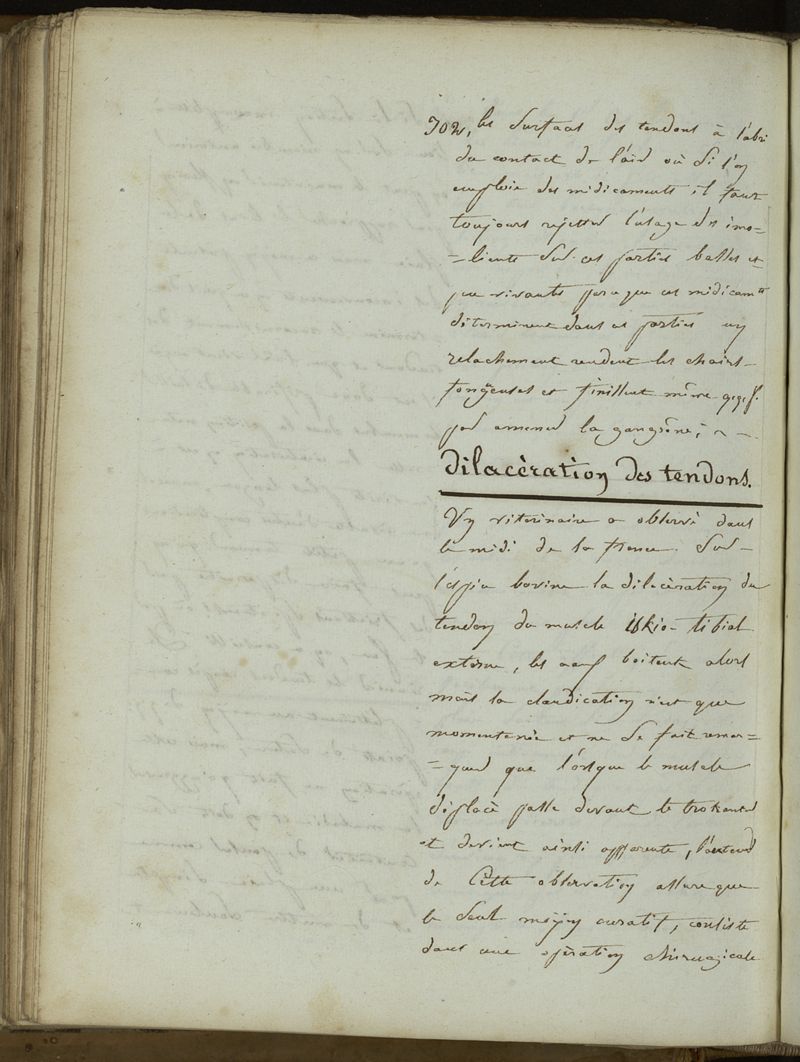 702, les surfaces des tendons à l'abri
du contact de l'aird où si l'on
emploie des médicaments il faut
toujours rejetter l'usage des émo=
=lients sur ces parties basses et
peu vivantes parceque ces médicamts
déterminent dans ces parties un
relachement rendent les chairs
fongeuses et finissent même qqf.
par amener la gangrène; ~ ~
dilacèration des tendons.
Un vétérinaire a observé dans
le midi de la france. Sur
l'éspèce bovine la dilacération du
tendon du muscle iskio-tibial
externe, les boeufs boitent alors
mais la claudication n'est que
momentanée et ne se fait remar=
=quer que l'orsque le muscle
déplacé passe devant le trokanter
et devient ainsi apparente, l'auteur
de Cette observation assure que
le seul moÿen curatif, consiste
dans une opèration chirurgicale